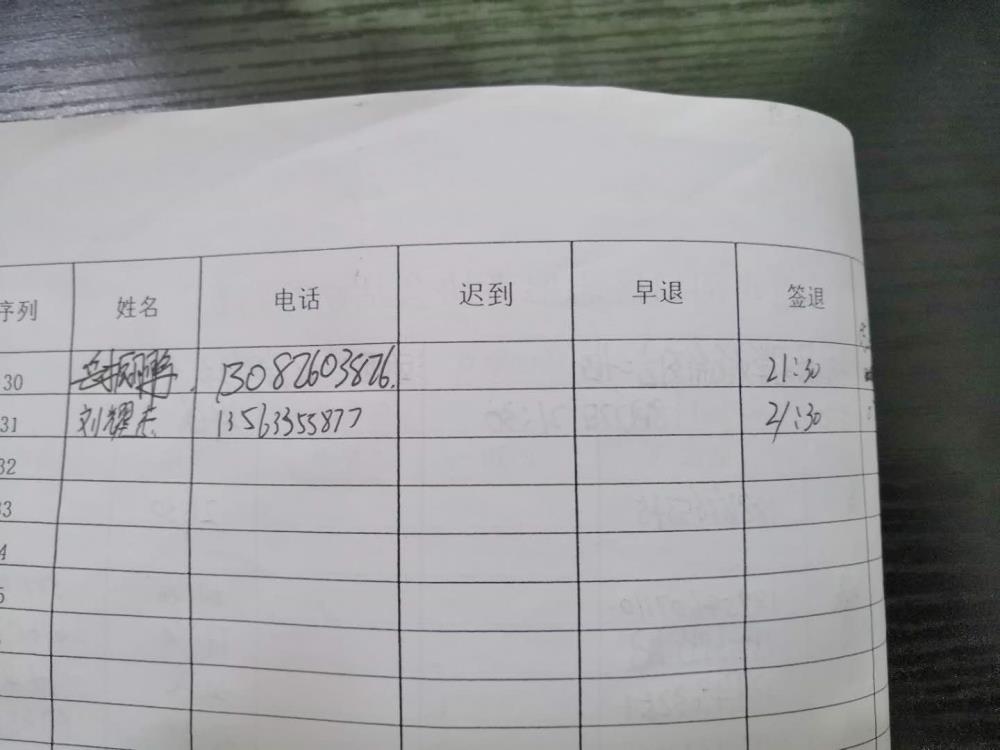 序列 姓名 电话 迟到 早退 签退
30 岳振鹏 13082603826. 21:30
31 刘耀杰 13563355877 21:30
32
33
4
5